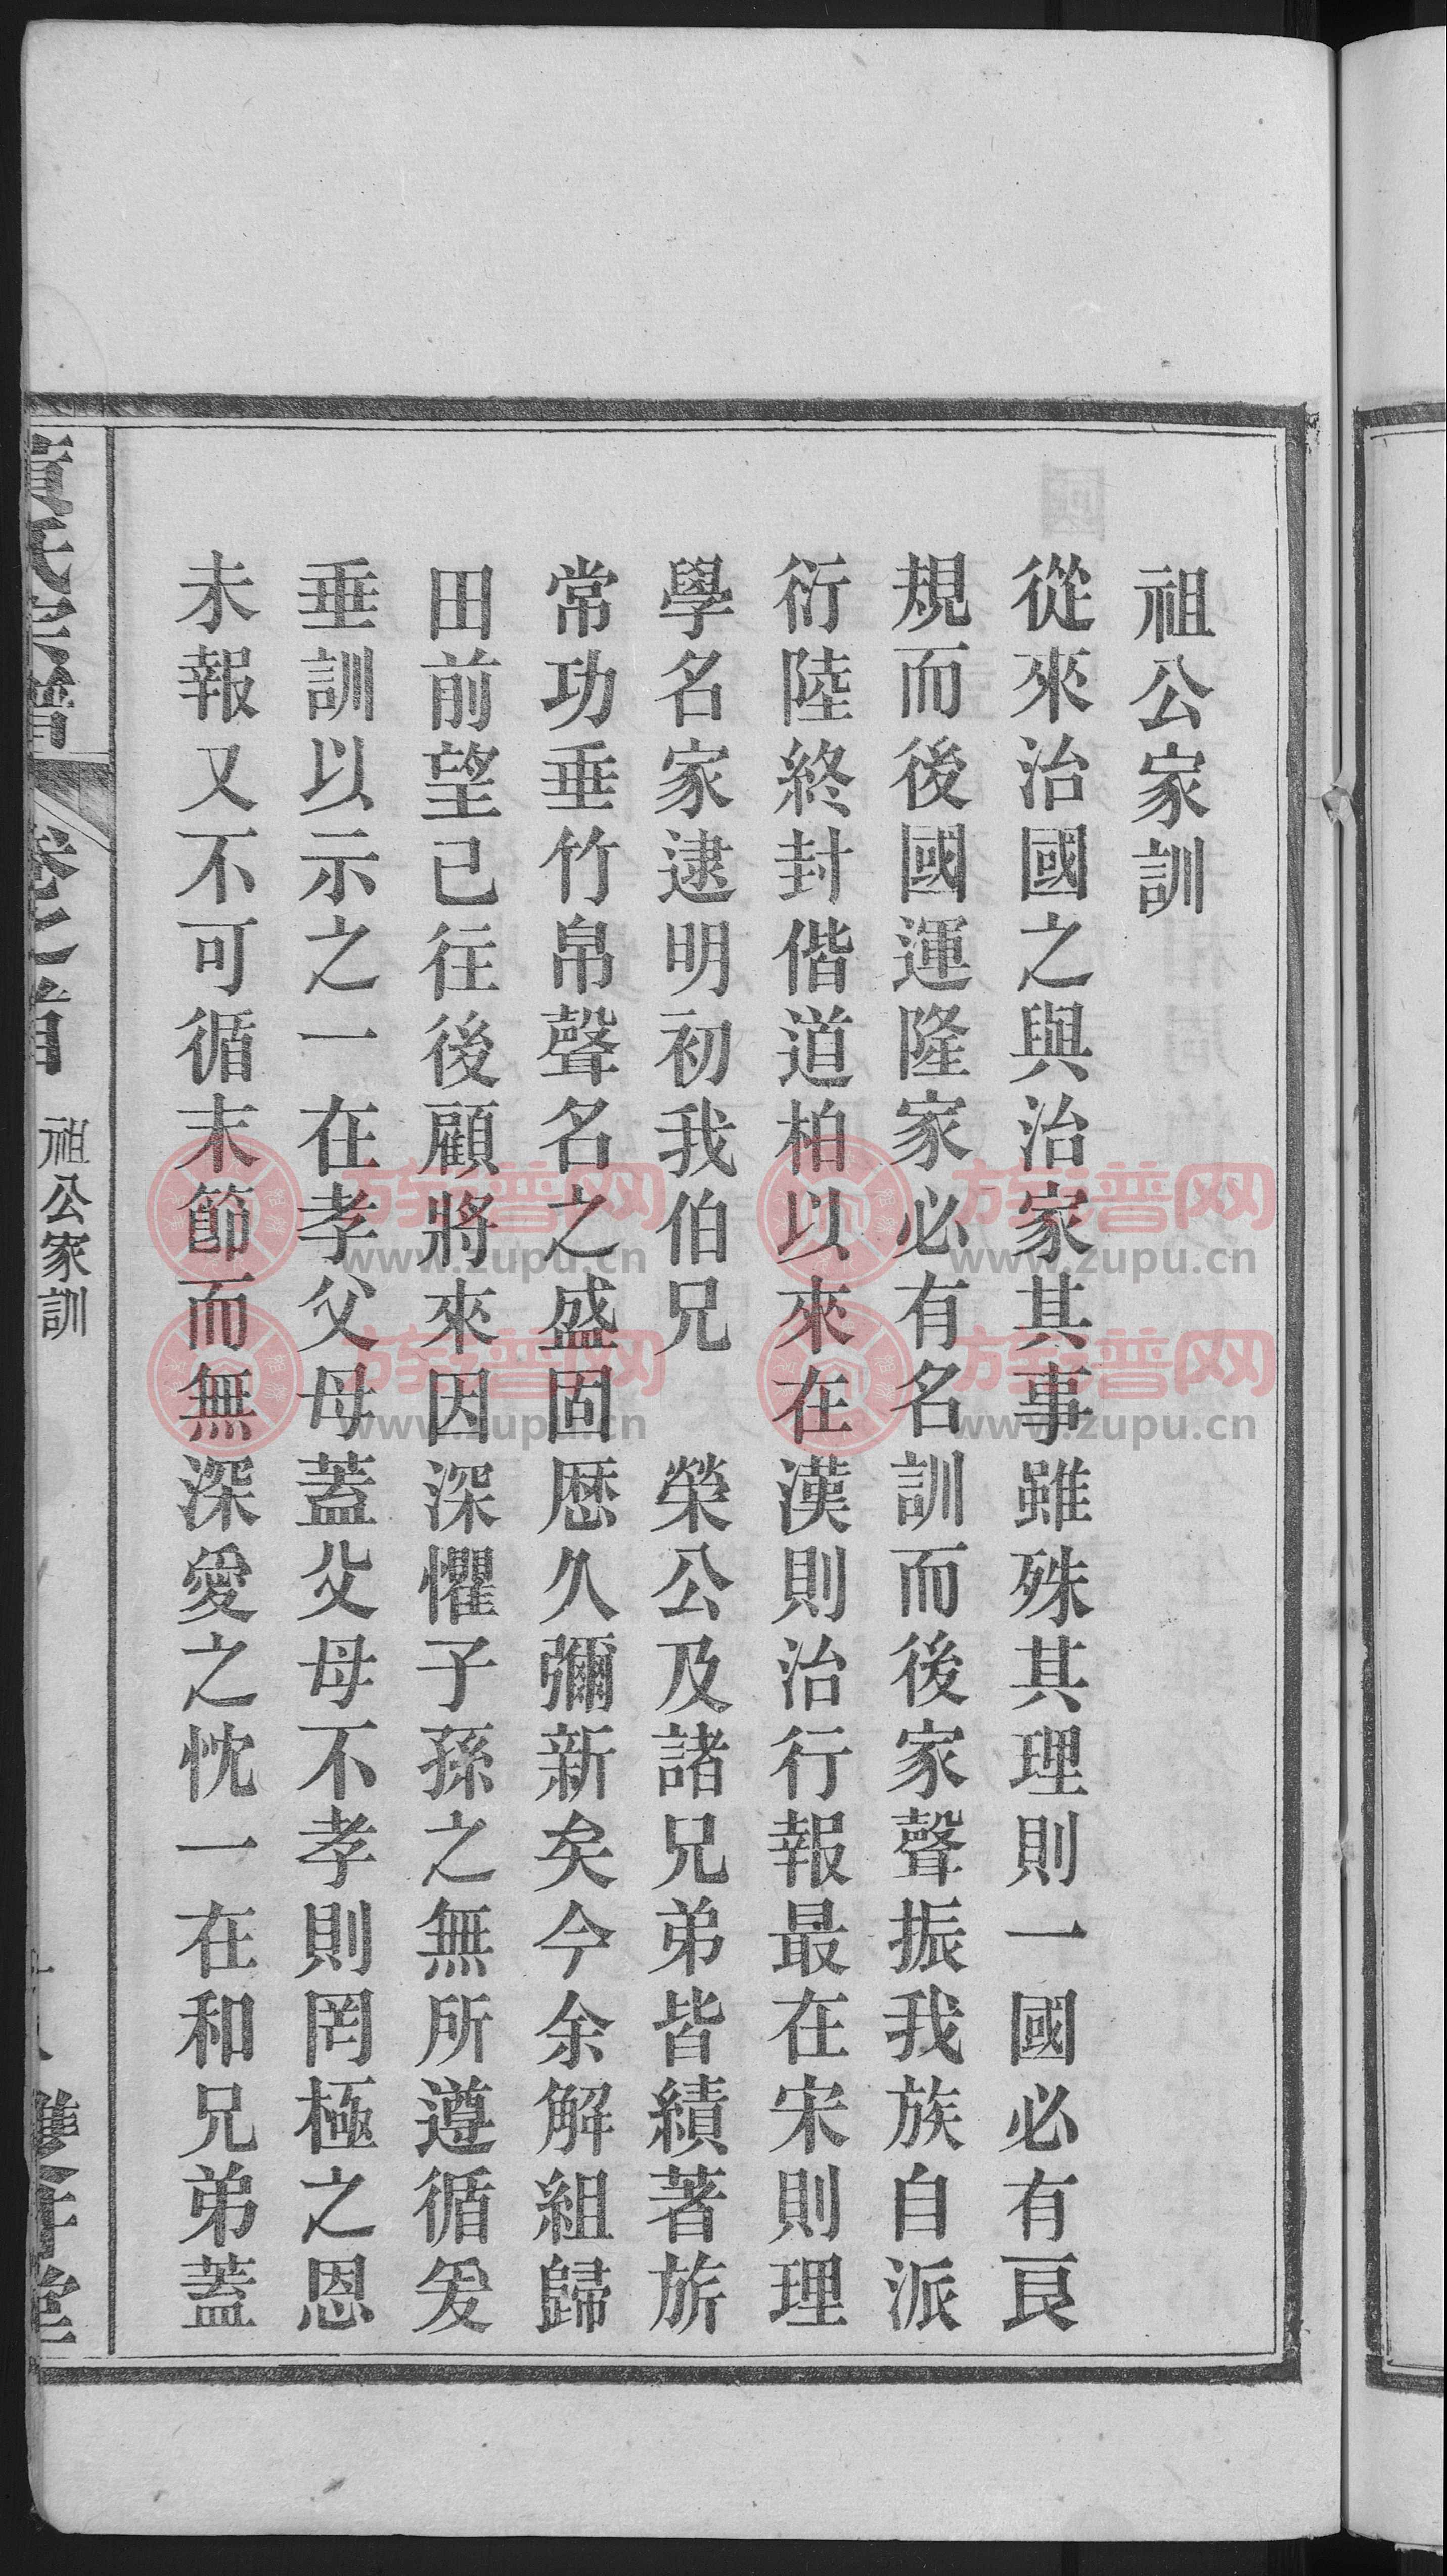 祖公家訓
從來治國之與治家其事雖殊其理則一國必有良
規而後國運隆家必有名訓而後家聲振我族自派
衍陸終封偕道柏以來在漢則治行報最在宋則理
學名家逮明初我伯兄 榮公及諸兄弟皆績著旂
常功垂竹帛聲名之盛固歷久彌新矣今余解組歸
田前望已往後顧將來因深懼子孫之無所遵循爰
垂訓以示之一在孝父母蓋父母不孝則罔極之恩
未報又不可循末節而無深愛之忱一在和兄弟蓋
黃氏宗譜 卷之首 祖公家訓
族譜网
www.zupu.cn
族譜网
www.zupu.cn
族譜网
www.zupu.cn
族譜网
www.zupu.cn